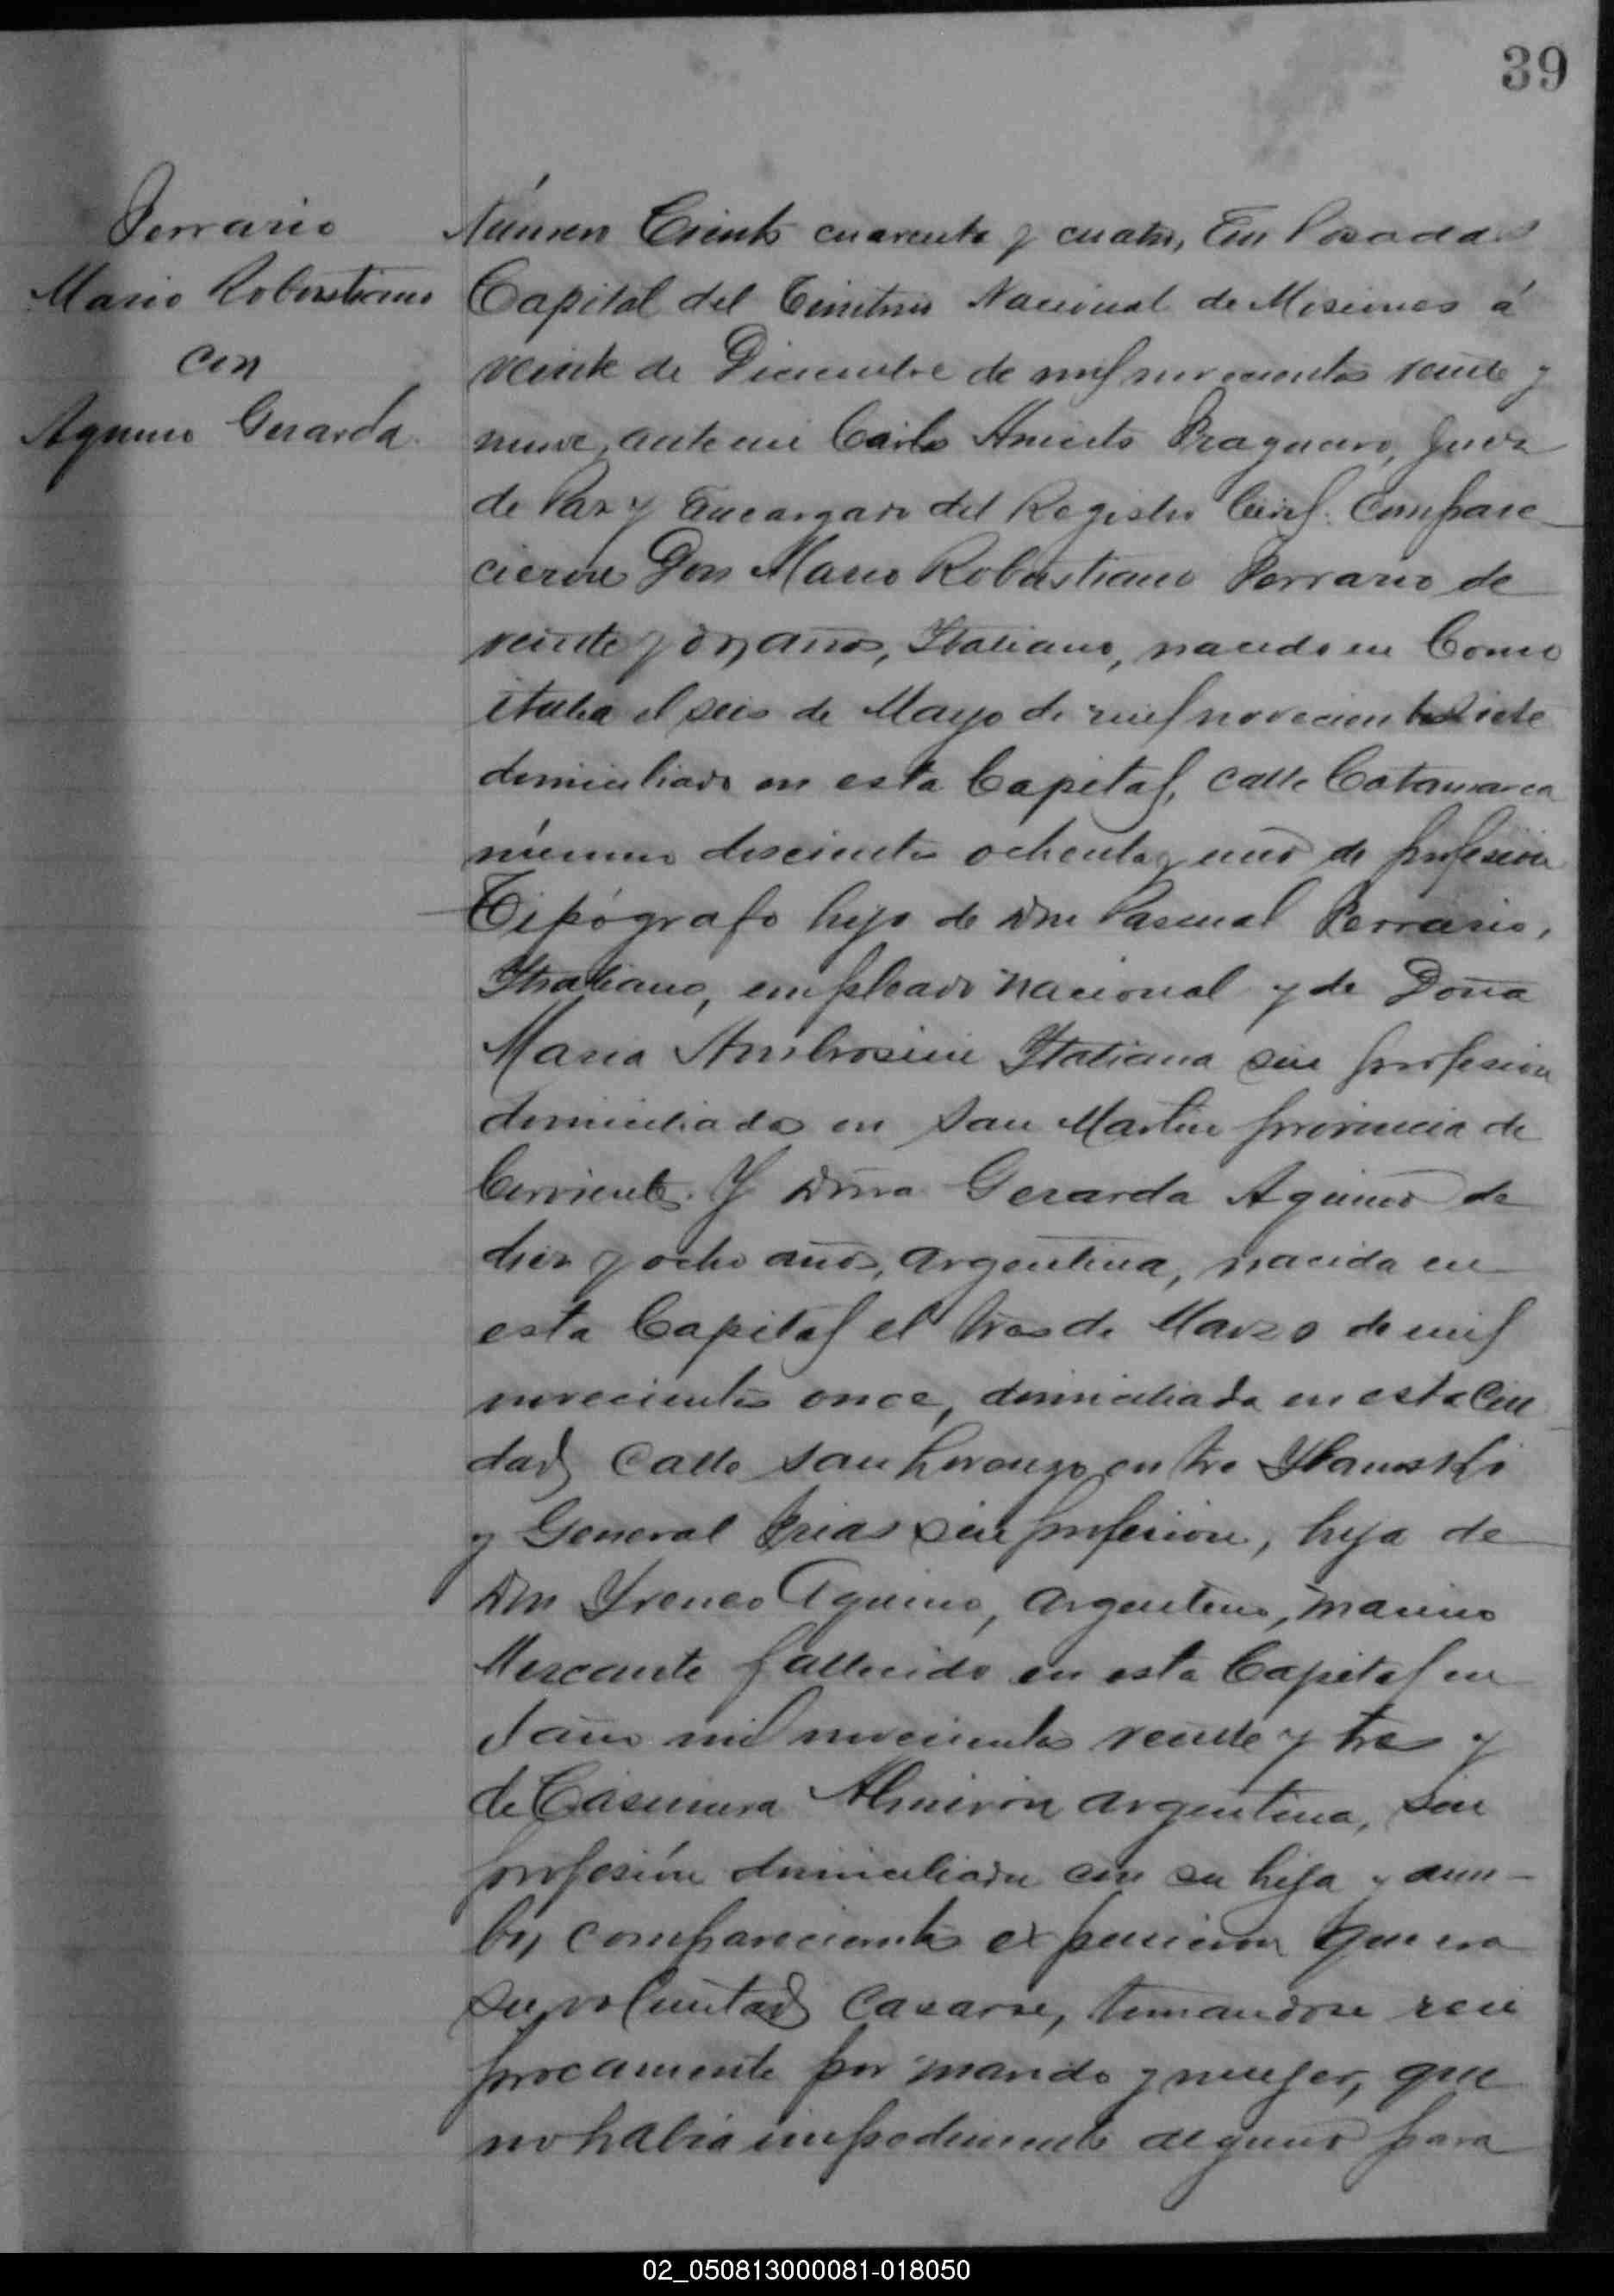 39
Ferrario
Mario Robustiano
con
Aquino Gerarda.
Número Ciento cuarenta y cuatro, En Posadas
Capital del Territorio Nacional de Misiones á
veinte de Diciembre de mil novecientos veinte y
nueve, ante mi Carlos Aniceto Fraguero, Juez
de Paz y Encargado del Registro Civil. Compare
cieron Don Mario Robustiano Ferrario de
veinte y dos años, Italiano, nacido en Como
italia el seis de Mayo de mil novecientos siete
domiciliado en esta Capital, calle Catamarca
número doscientos ochenta y uno de profesión
Tipógrafo hijo de Don Pascual Ferrario,
Italiano, empleado nacional y de Doña
Maria Ambrosini Italiana sin profesion
domiciliados en San Martin provincia de
Corrientes. Y Doña Gerarda Aquino de
diez y ocho años, argentina, nacida en
esta Capital el tres de Marzo de mil
novecientos once, domiciliada en esta Ciu
dad calle San Lorenzo entre
y General Frias sin profesion, hija de
Don Ireneo Aquino, argentino, marino
Mercante fallecido en esta Capital en
el año mil novecientos veinte y tres y
de Casimira Almirón argentina, sin
profesión domiciliada con su hija y am-
bos comparecientes expusieron que era
su voluntad casarse, tomandose reci
procamente por marido y mujer, que
no habia impedimento alguno para
02_050813000081-018050